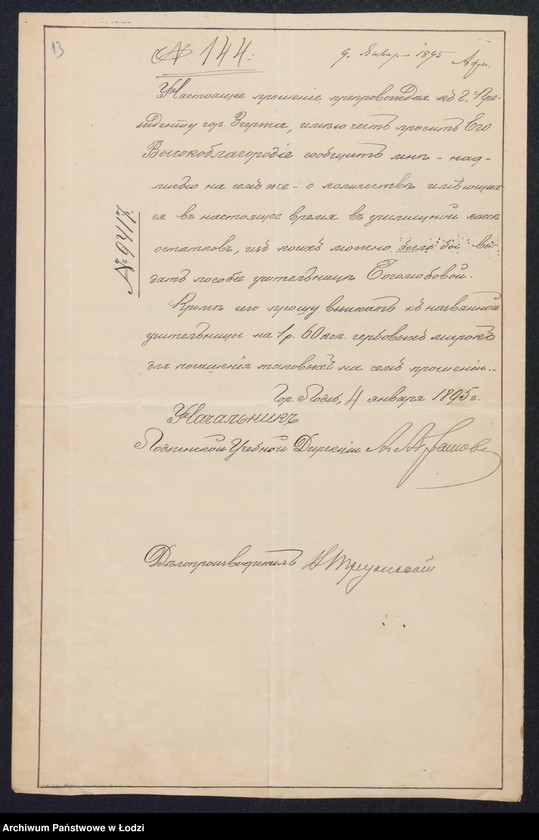 13
№ 144.
9. Январ - 1895
№ 9417.
Настоящее прошеніе препровождая къ Г. Пре-
зиденту гор. Згержа, имѣю честь просить Его
Высокоблагородіе сообщить мнѣ - над-
писью на семъ же - о количествѣ имѣющих-
ся въ настоящее время въ училищной кассѣ
остатковъ, изъ коихъ можно было бы вы-
дать пособіе учительницѣ Боголюбовой.
Кромѣ сего прошу взыскать съ названной
учительницы на 1 р. 60 коп. гербовыхъ марокъ
для погашенія таковыхъ на семъ прошеніи.
Гор. Лодзь, 4 января 1895 г.
Начальникъ
Лодзинской Учебной Дирекціи А. Абрамовъ
Дѣлопроизводитель
Archiwum Państwowe w Łodzi